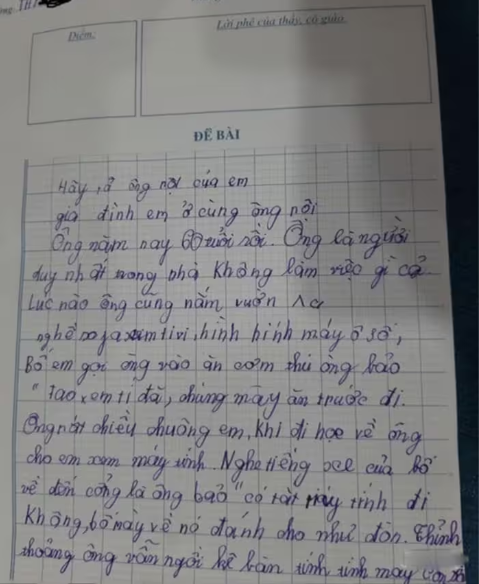 Điểm:
Lời phê của thầy, cô giáo.
ĐỀ BÀI
Hãy tả ông nội của em
gia đình em ở cùng ông nội
Ông năm nay 60 tuổi rồi. Ông là người
duy nhất trong nhà không làm việc gì cả
Lúc nào ông cũng nằm vườn ra
nghế xem tivi, hình hính mấy ô số,
Bố em gọi ông vào ăn cơm thì ông bảo
"Tao xem tí đã, chúng mày ăn trước đi.
Ông rất chiều chuông em, khi đi học về ông
cho em xem máy tính. Nghe tiếng xe của bố
về đến cổng là ông bảo "có tắt máy tính đi
không, bố mày về nó đánh cho như đòn. Thỉnh
thoảng ông vẫn ngồi kê bàn tính tính mấy con